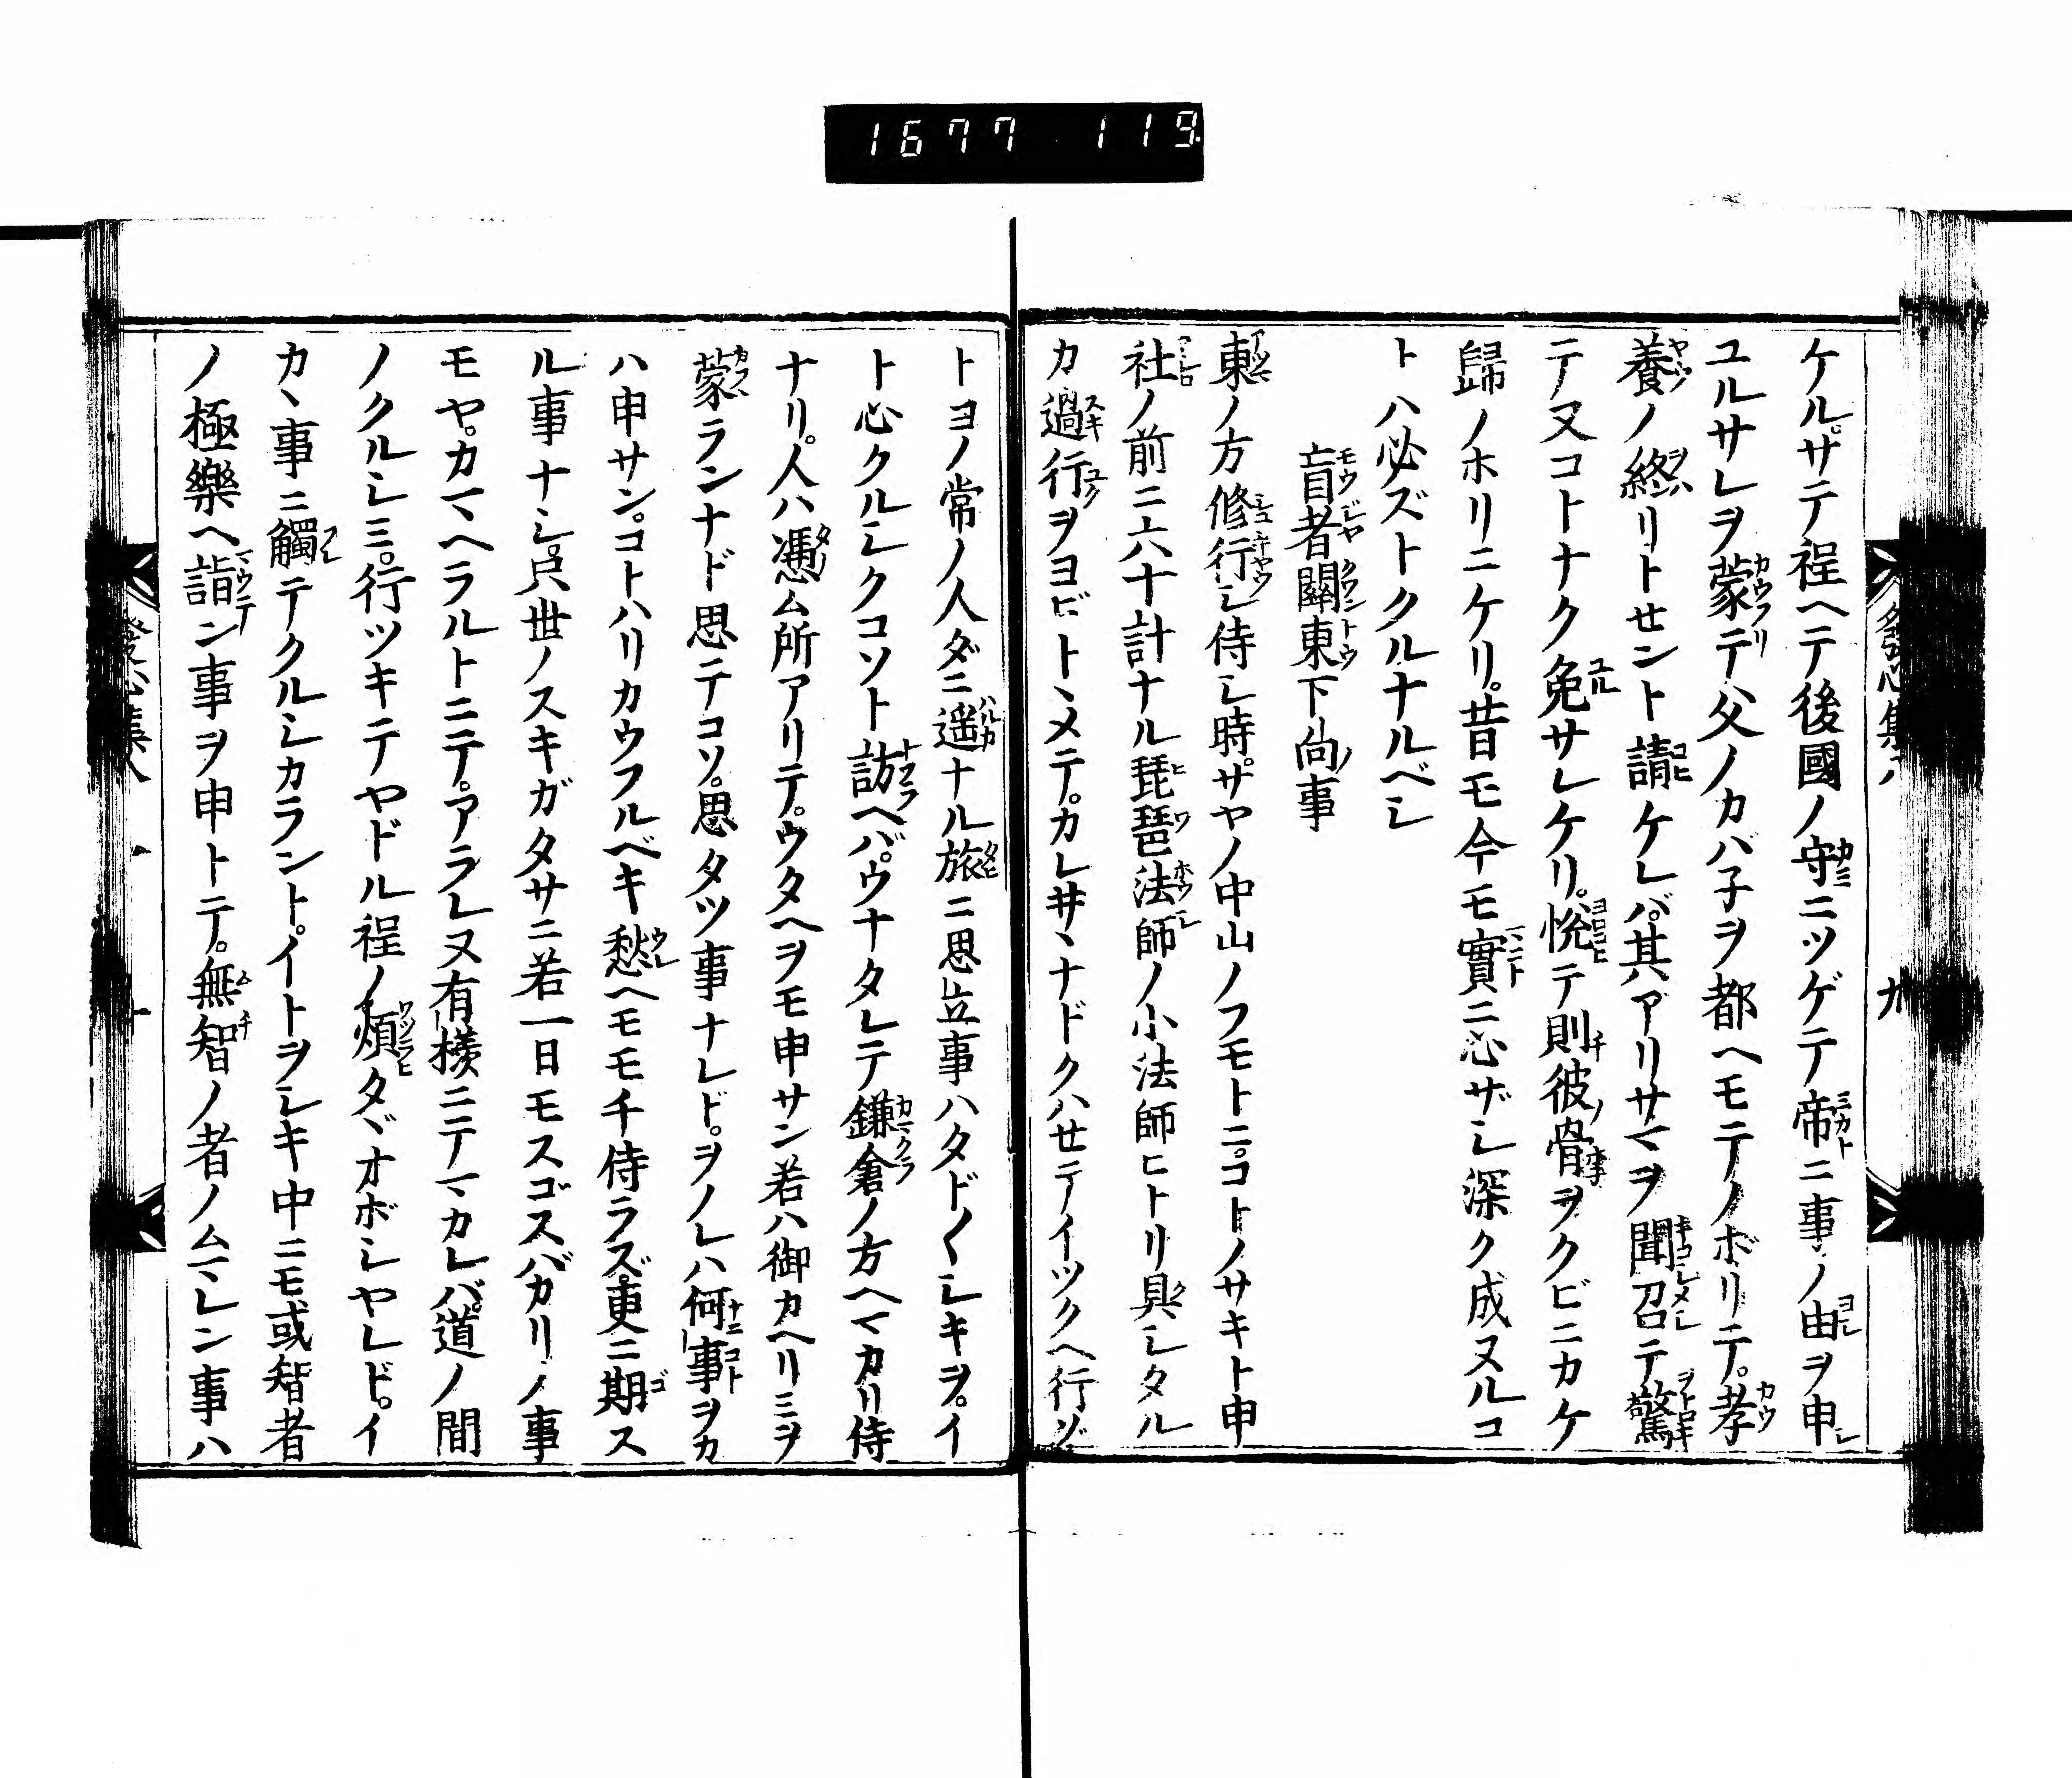 1677 119
ケル。サテ程ヘテ後國ノ守ニツゲテ帝ニ事ノ由ヲ申
ユルサレヲ蒙テ父ノカバ子ヲ都ヘモテノボリニテ。孝
養ノ終リトセント請ケレバ。其アリサマヲ聞召テ驚
テ又コトナク免サレケリ。悦テ則彼骨ヲクビニカケ
歸ノホリニケリ。昔モ今モ實ニ心ザシ深ク成ヌルコ
トハ必ズトクルナルベシ
盲者關東下向事
東ノ方修行シ侍シ時。サヤノ中山ノフモトニ。コトノサキト申
社ノ前ニ六十計ナル琵琶法師ノ小法師ヒトリ具シタル
カ過行ヲヨビトヽメテ。カレ井ヽナドクハセテイツクヘ行ゾ
トヨノ常ノ人ダニ遥ナル旅ニ思立事ハタド〱シキヲ。イ
ト心クルシクコソト訪ヘバ。ウナタレテ鎌倉ノ方ヘマカリ侍
ナリ。人ハ憑ム所アリテ。ウタヘヲモ申サン若ハ御カヘリミヲ
蒙ランナド思テコソ。思タツ事ナレド。ヲノレハ何事ヲカ
ハ申サン。コトハリカウフルベキ愁ヘモモチ侍ラズ。更ニ期ス
ル事ナシ。只世ノスキガタサニ若一日モスゴスバカリノ事
モヤ。カマヘラルトニテ。アラレヌ有様ニテマカレバ。道ノ間
ノクルシミ。行ツキテヤドル程ノ煩タヾオボシヤレド。イ
カヽ事ニ觸テクルシカラント。イトヲシキ中ニモ或智者
ノ極樂ヘ詣ン事ヲ申トテ。無智ノ者ノムマレン事ハ
發心集八
九